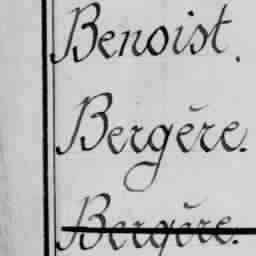 Benoist.
Bergère.
Bergère.